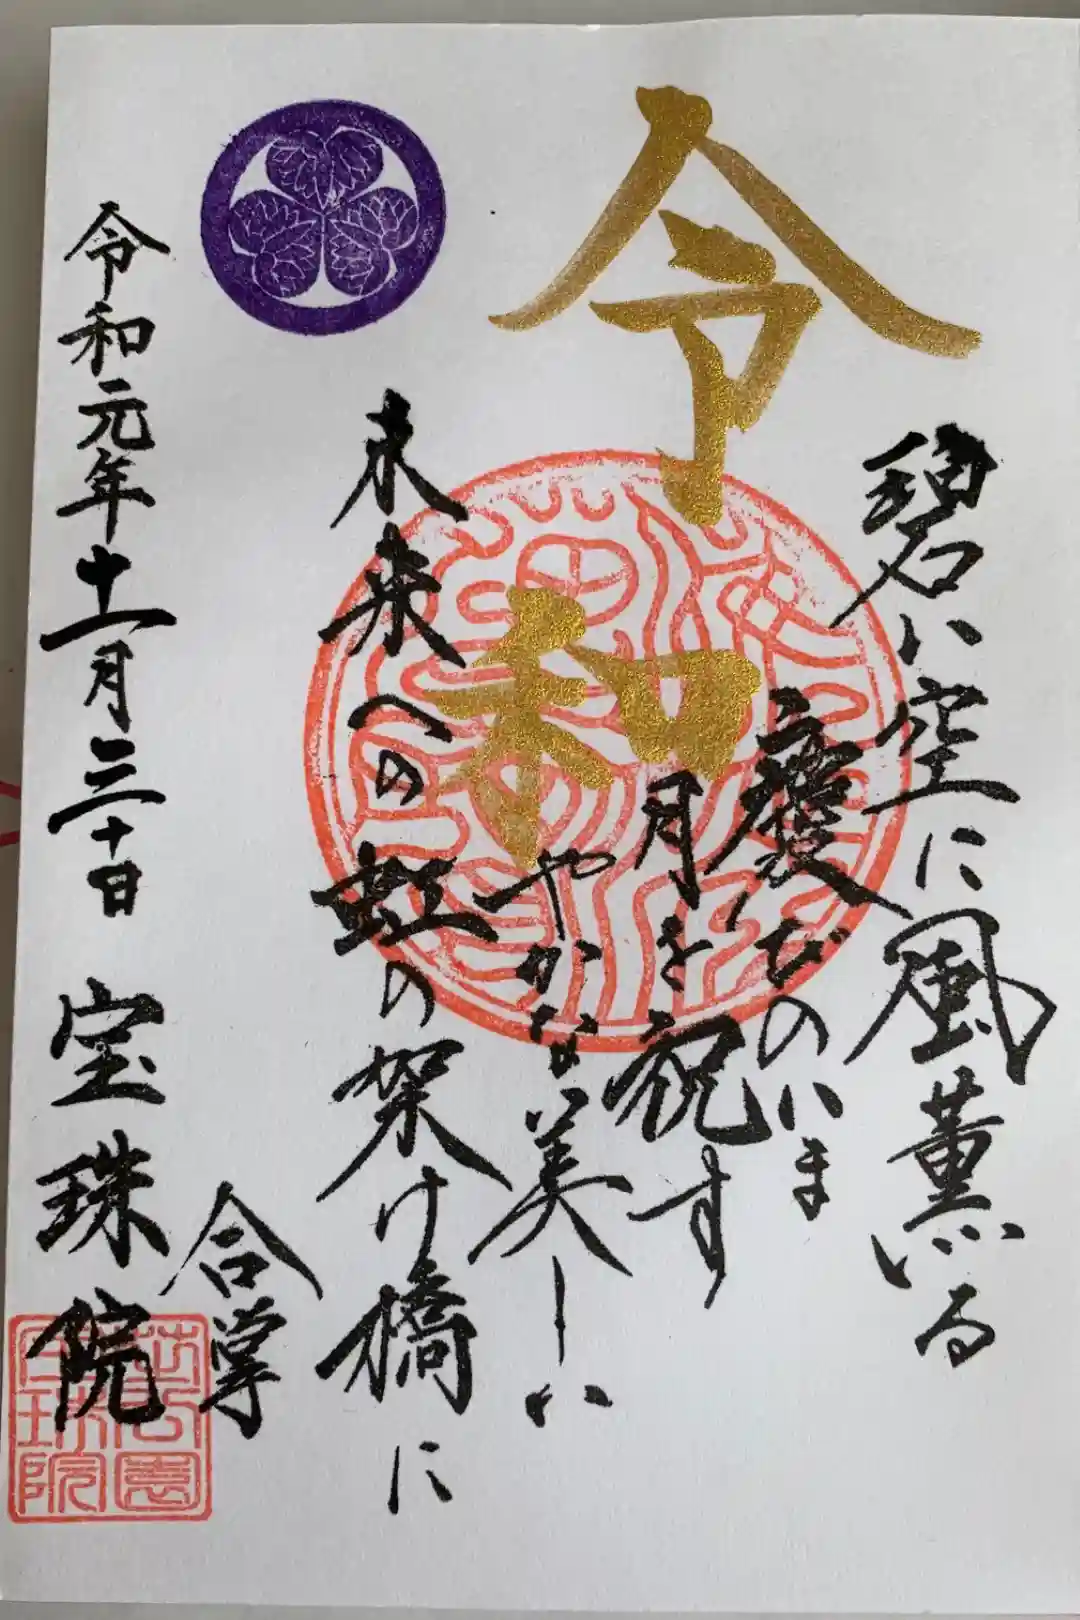 碧い空に風薫る
慶びのいま
令月を祝す
和やかな美しい
未来への虹の架け橋に
合掌
令和元年十一月三十日 宝珠院
芝公園
宝珠院